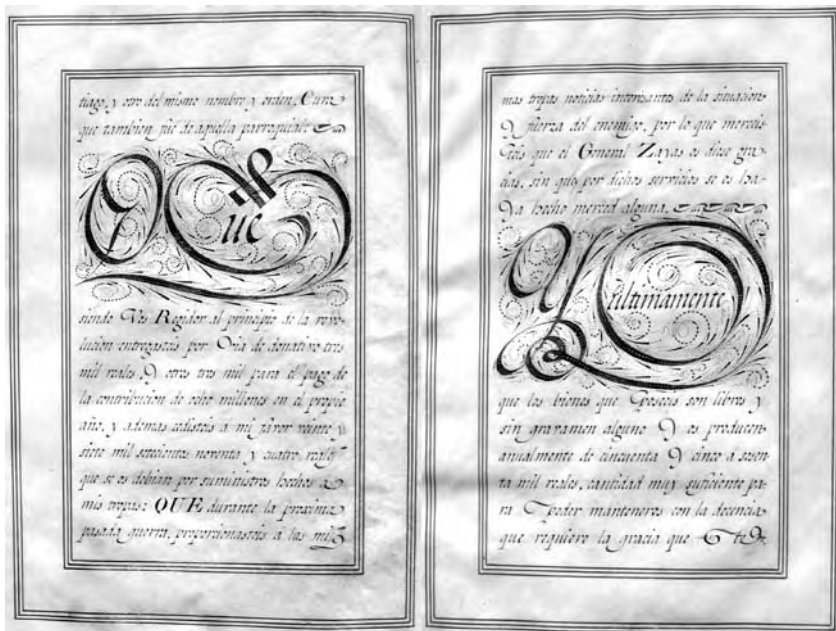 tiago, y otro del mismo nombre y orden, Cura
que tambien fué de aquella parroquial:
Que
siendo Vos Regidor al principio de la revo-
lucion entregasteis por Via de donativo tres
mil reales, Y otros tres mil para el pago de
la contribucion de ocho millones en el propio
año, y ademas cedisteis á mi favor veinte y
siete mil setecientos noventa y cuatro reales
que se os debian por suministros hechos á
mis tropas: QUE durante la proxima
pasada guerra, proporcionasteis á las mis
mas tropas noticias interesantes de la situacion
Y fuerza del enemigo, por lo que merecis-
teis que el General Zayas os diese gra-
cias, sin que por dichos servicios se os ha-
Ya hecho merced alguna.
Y últimamente
que los bienes que Poseeis son libres y
sin gravamen alguno Y os producen
anualmente de cincuenta Y cinco á sesen-
ta mil reales, cantidad muy suficiente pa-
ra Poder manteneros con la decencia
que requiere la gracia que